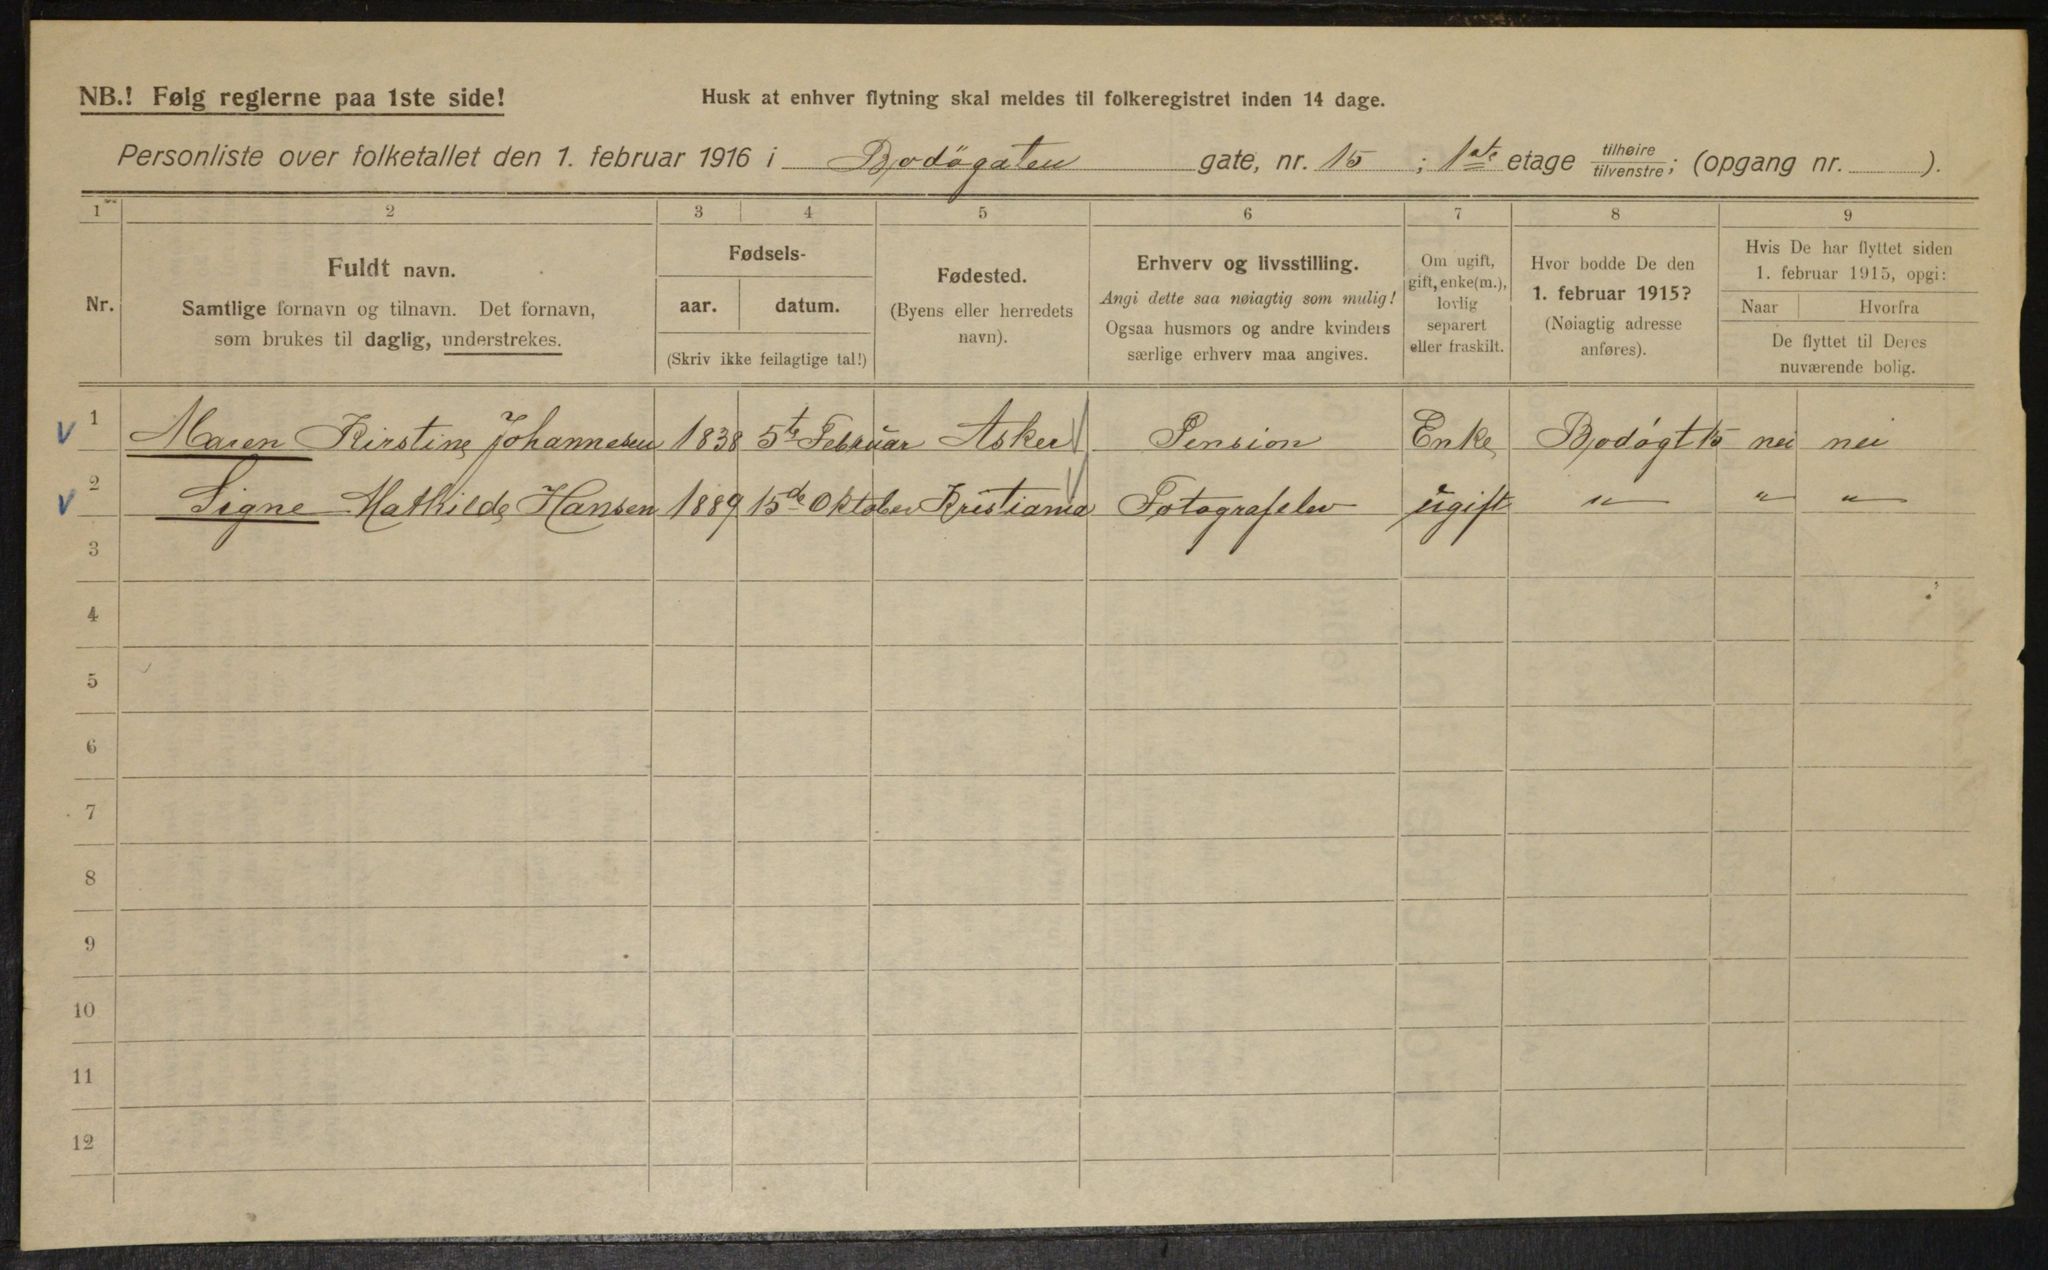 NB.! Følg reglerne paa 1ste side!
Husk at enhver flytning skal meldes til folkeregistret inden 14 dage.
Personliste over folketallet den 1. februar 1916 i Bodøgaten gate, nr. 15; 1ste etage tilhøire/tilvenstre; (opgang nr. ).
1 2 3 4 5 6 7 8 9
Nr.
Fuldt navn.
Samtlige fornavn og tilnavn. Det fornavn,
som brukes til daglig, understrekes.
Fødsels-
aar. datum.
(Skriv ikke feilagtige tal!)
Fødested.
(Byens eller herredets
navn).
Erhverv og livsstilling.
Angi dette saa nøiagtig som mulig!
Ogsaa husmors og andre kvinders
særlige erhverv maa angives.
Om ugift,
gift, enke(m.),
lovlig
separert
eller fraskilt.
Hvor bodde De den
1. februar 1915?
(Nøiagtig adresse
anføres).
Hvis De har flyttet siden
1. februar 1915, opgi:
Naar Hvorfra
De flyttet til Deres
nuværende bolig.
1 Maren Kirstine Johannesen 1838 5te Februar Asker Pension Enke Bodøgt 15 nei nei
2 Signe Mathilde Hansen 1889 15de Oktober Kristiania Fotografelev ugift " " "
3
4
5
6
7
8
9
10
11
12